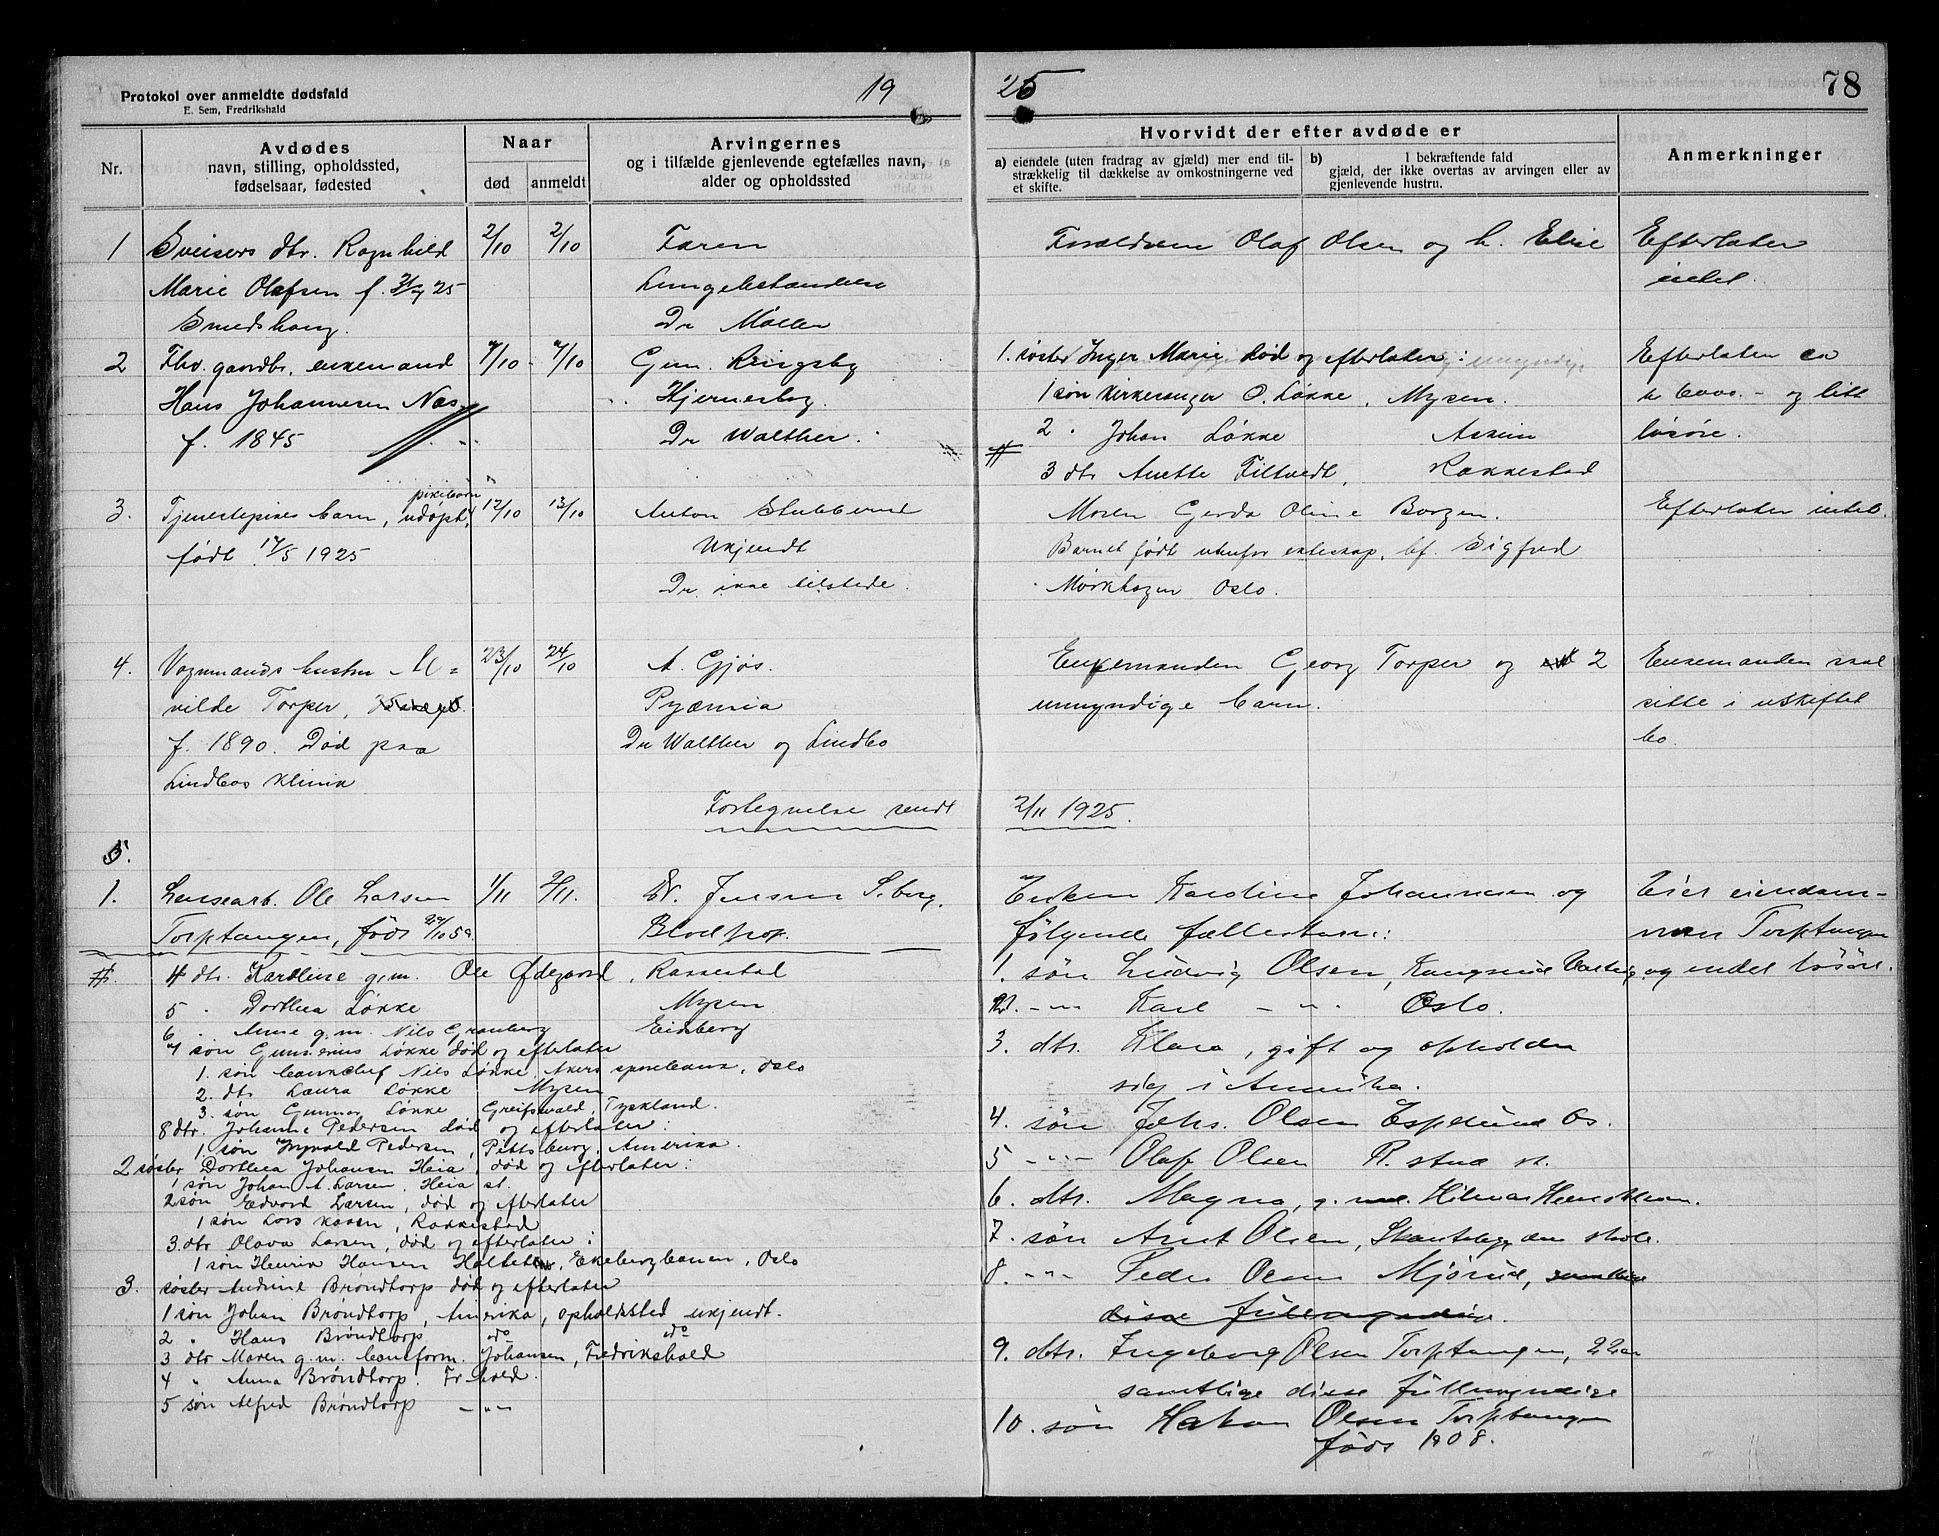 Protokol over anmeldte dødsfald
E. Sem, Fredrikshald
19
25
78
Nr.
Avdødes
navn, stilling, opholdssted,
fødselsaar, fødested
Naar
død
anmeldt
Arvingernes
og i tilfælde gjenlevende egtefælles navn,
alder og opholdssted
Hvorvidt der efter avdøde er
a) eiendele (uten fradrag av gjæld) mer end til-
strækkelig til dækkelse av omkostningerne ved
et skifte.
b) I bekræftende fald
gjæld, der ikke overtas av arvingen eller av
gjenlevende hustru.
Anmerkninger
1 Sveisers dtr. Ragnhild 2/10 2/10 Faren Forældrene Olaf Olsen og h. Elise Efterlater
Marie Olafsen f. 25 Lungebetændelse intet.
Smedshaug. Dr Møller
2 Fhv. gaardbr., enkemand 7/10 - 7/10 Gun. Ringsby 1. søster Inger Marie død og efterlater: Efterlater ca
Hans Johannesen Næs Hjerneslag. 1 søn kirkesanger O. Løkke, Mysen. kr 6000.- og litt
f. 1845 Dr Walther. # 2 " Johan Løkke Askim løsøre.
3 dtr Anette Filtvedt, Rakkestad
3. Tjenestepikes barn, pikebarn udøpt, 12/10 13/10 Anton Stubberud Moren Gerda Oline Borgen. Efterlater intet.
født 17/5 1925 Ukjendt Barnet født utenfor ekteskap, bf. Sigfred
Dr. ikke tilstede. Mørkhagen Oslo.
4. Vognmands hustru M= 23/10 24/10 A. Gjøs. Enkemanden Georg Torper og 2 Enkemanden skal
vilde Torper, Pyæmia umyndige barn. sitte i uskiftet
f. 1890. Død paa Dr Walther og Lindbo bo.
Lindbos klinik
Fortegnelse sendt 2/11 1925.
5.
1. Lensearb. Ole Larsen 1/11 2/11. Dr. Jensen S.borg. Enken Karoline Johannesen og Eier eiendom-
Torptangen, født Blodprop. følgende fællesbarn: men Torptangen
1. søn Ludvig Olsen, Varteig og endel løsøre.
# 4 dtr. Karoline g.m. Ole Ødegaard, Rakkestad
5 " Dorthea Løkke Mysen
2. -"- Karl -"- Oslo.
6 " Anne g.m. Nils Granberg Eidsberg
7 søn Gunnerius Løkke død og efterlater
3. dtr. Klara, gift og opholder
1. søn bankchef Nils Løkke, Akers sparebank, Oslo
2. dtr Laura Løkke Mysen
sig i Amerika.
3. søn Gunnar Løkke Greifswald, Tyskland.
8 dtr. Johanne Pedersen død og efterlater:
4. søn Johs. Olsen Espelund Os.
1. søn Ingvald Pedersen, Pittsburg, Amerika.
2 søster Dorthea Johansen Heia, død og efterlater:
5 -"- Olaf Olsen R.stad st.
1 søn Johan A. Larsen, Heia st.
2 søn Edvard Larsen, død og efterlater
6. dtr. Magna, g. m. Hilmar
1 søn Lars Larsen, Rakkestad
3. dtr Olava Larsen, død og efterlater:
7. søn Arnt Olsen,
1 søn Henrik Hansen Holtet, Ekebergbanen, Oslo
8. -"- Peder Olsen Mjørud, samtlige
3. søster Andrine Brøndtorp død og efterlater
disse fuldmyndige.
1 søn Johan Brøndtorp, Amerika, opholdssted ukjendt.
2 " Hans Brøndtorp do do
9. dtr. Ingeborg Olsen Torptangen, 22 aar
3 dtr Maren g.m. banform. Johansen, Fredrikshald
4 " Anna Brøndtorp. Fr.hald.
samtlige disse fuldmyndige
5 søn Alfred Brøndtorp -"-
10. søn Hakon Olsen Torptangen
født 1908.